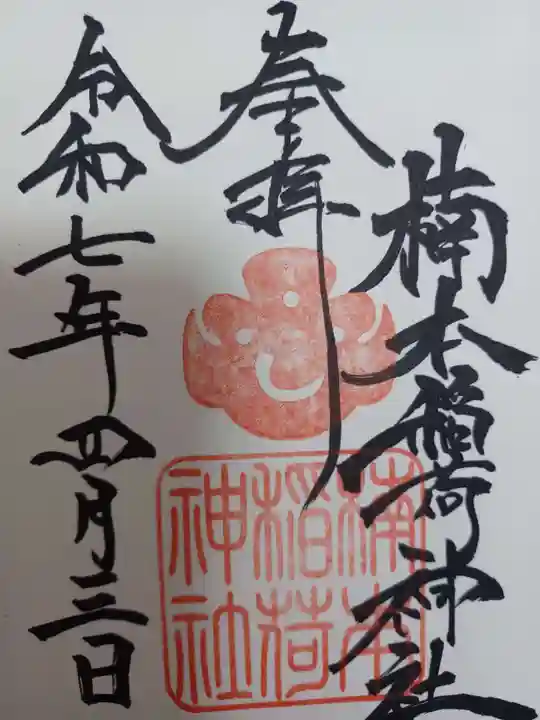 楠本稲荷神社
奉拝
令和七年四月三日
楠本
稲荷
神社